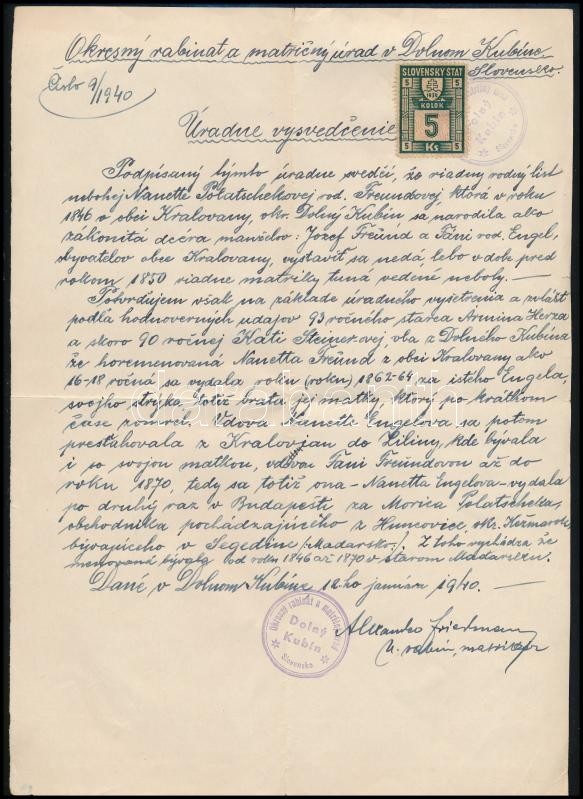 Okresný rabinat a matričný úrad v Dolnom Kubíne
Slovensko.
Číslo 9/1940
SLOVENSKÝ ŠTÁT
1939
KOLOK
5 5
5
5 Ks 5
Dolný
Kubín
Slovensko
Úradné vysvedčenie
Podpísaný týmto úradne svedčí, že riadny rodný list
nebohej Nanette Polatschekovej rod. Freundovej, ktorá v roku
1846 v obci Kralovany, okr. Dolný Kubín sa narodila ako
zákonitá dcéra manželov: Jozef Freund a Fáni rod. Engel,
obyvateľov obce Kralovany, vystaviť sa nedá lebo v dobe pred
rokom 1850 riadne matriky tuná vedené neboly. —
Potvrdzujem však na základe úradného vyšetrenia a zvlášť
podľa hodnoverných udajov 93 ročného starca Armina Herza
a skoro 90 ročnej Kati Steinerovej, oba z Dolného Kubína
že horemenovaná Nanetta Freund z obci Kralovany ako
16-18 ročná sa vydala roku (roku) 1862-64 za istého Engela,
svojho strýka totiž brata jej matky, ktorý po krátkom
čase zomrel. Vdova Nanette Engelova sa potom
presťahovala z Kralovjan do Žiliny, kde bývala
i so svojou matkou, vdovou Fani Freundovou až do
roku 1870, tedy sa totiž ona - Nanetta Engelova - vydala
po druhý raz v Budapešti za Morica Polatscheka,
obchodníka pochádzajúceho z Huncovice, okr. Kežmarok
bývajúceho v Segedíne /Maďarsko/. Z toho vychádza že
menovaná bývala od roku 1846 až 1870 v starom Maďarsku.
Dané v Dolnom Kubíne 12-ho januára 1940. —
Okresný rabinát a matričný úrad
Dolný
Kubín
Slovensko
Alexander Friedmann
rabín, matrikár